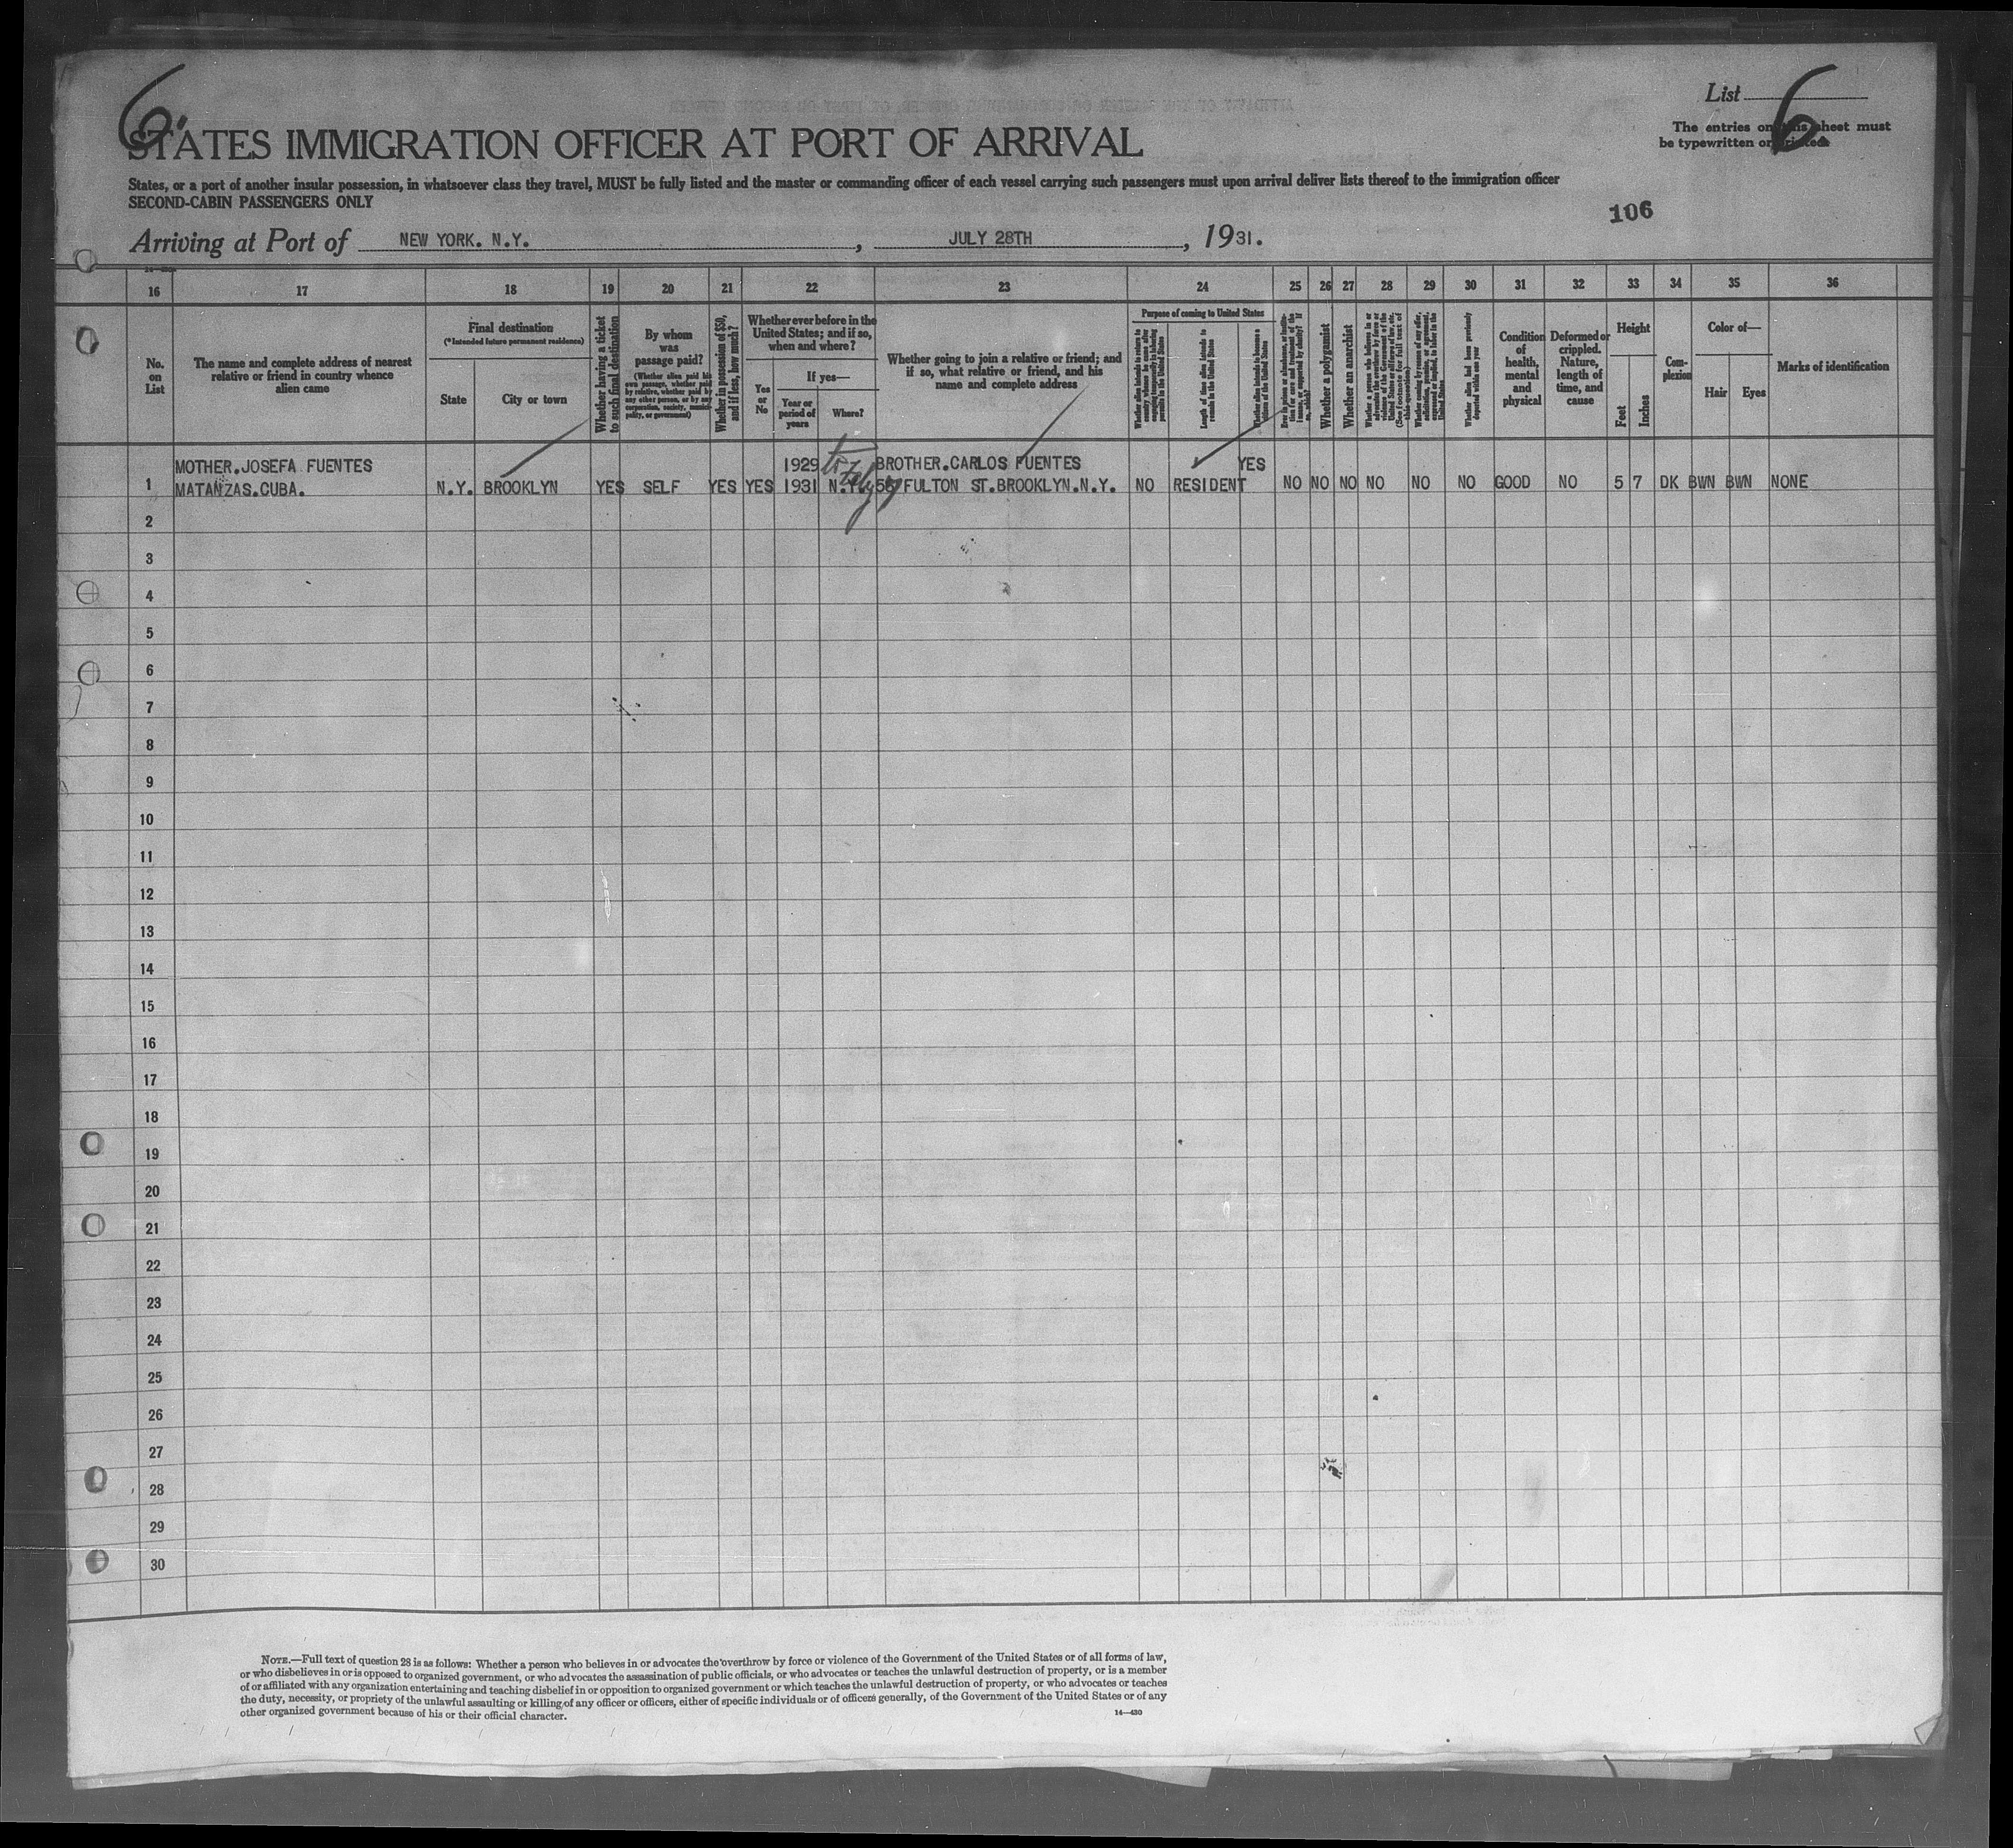 6.
List 6
The entries on this sheet must
be typewritten or printed.
STATES IMMIGRATION OFFICER AT PORT OF ARRIVAL
States, or a port of another insular possession, in whatsoever class they travel, MUST be fully listed and the master or commanding officer of each vessel carrying such passengers must upon arrival deliver lists thereof to the immigration officer
SECOND-CABIN PASSENGERS ONLY
106
Arriving at Port of NEW YORK. N.Y. , JULY 28TH , 1931.
16 17 18 19 20 21 22 23 24 25 26 27 28 29 30 31 32 33 34 35 36
No. on List
The name and complete address of nearest relative or friend in country whence alien came
Final destination
(*Intended future permanent residence)
State
City or town
Whether having a ticket to such final destination
By whom was passage paid?
(Whether alien paid his own passage, whether paid by relative, whether paid by any other person, or by any corporation, society, municipality, or government)
Whether in possession of $50, and if less, how much?
Whether ever before in the United States; and if so, when and where?
Yes or No
If yes—
Year or period of years
Where?
Whether going to join a relative or friend; and if so, what relative or friend, and his name and complete address
Purpose of coming to United States
Length of time alien intends to remain in the United States
Whether alien intends to become a citizen of the United States
Whether a polygamist
Whether an anarchist
Whether alien had been previously deported within one year
Condition of health, mental and physical
Deformed or crippled. Nature, length of time, and cause
Height
Feet
Inches
Complexion
Color of—
Hair
Eyes
Marks of identification
MOTHER.JOSEFA FUENTES 1929 BROTHER.CARLOS FUENTES YES
1 MATANZAS.CUBA. N.Y. BROOKLYN YES SELF YES YES 1931 N.Y. FULTON ST.BROOKLYN.N.Y. NO RESIDENT NO NO NO NO NO NO GOOD NO 5 7 DK BWN BWN NONE
2
3
4
5
6
7
8
9
10
11
12
13
14
15
16
17
18
19
20
21
22
23
24
25
26
27
28
29
30
NOTE.—Full text of question 28 is as follows: Whether a person who believes in or advocates the overthrow by force or violence of the Government of the United States or of all forms of law,
or who disbelieves in or is opposed to organized government, or who advocates the assassination of public officials, or who advocates or teaches the unlawful destruction of property, or is a member
of or affiliated with any organization entertaining and teaching disbelief in or opposition to organized government or which teaches the unlawful destruction of property, or who advocates or teaches
the duty, necessity, or propriety of the unlawful assaulting or killing of any officer or officers, either of specific individuals or of officers generally, of the Government of the United States or of any
other organized government because of his or their official character.
14—430